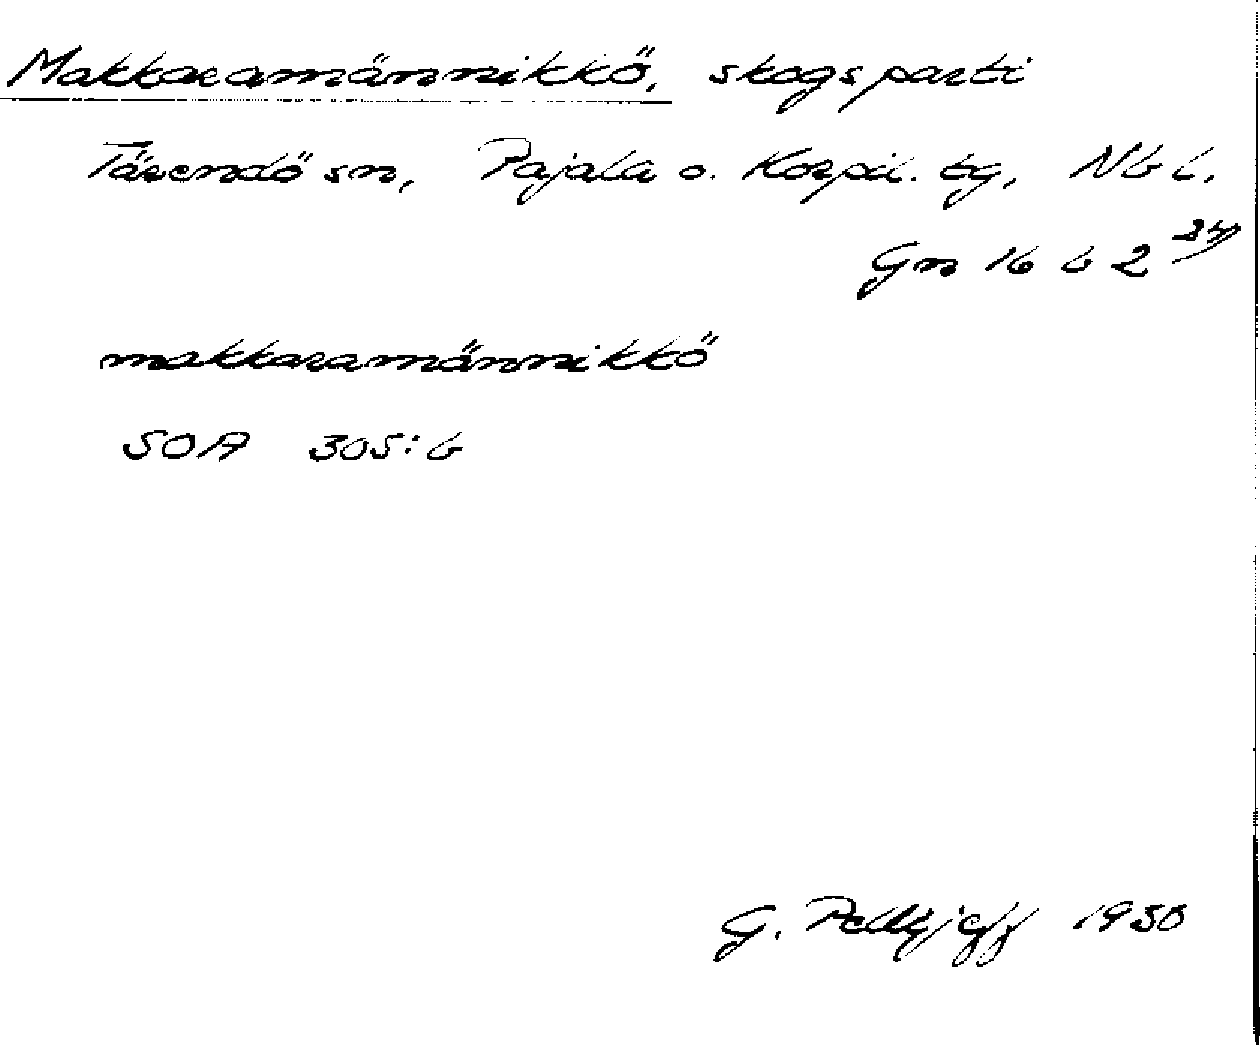 Makkaramännikkö, skogsparti
Tärendö sn, Pajala o. Korpil. tg, Nb l.
Gn 16 b 2
makkaramännikkö
SOA 305:6
G. Pellijeff 1950